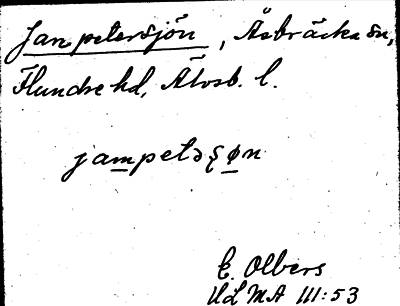 Janpetersjön, Åsbräcka sn,
Flundre hd, Älvsb. l.
jampetəʂøn
E. Olbers
ULMA 111:53